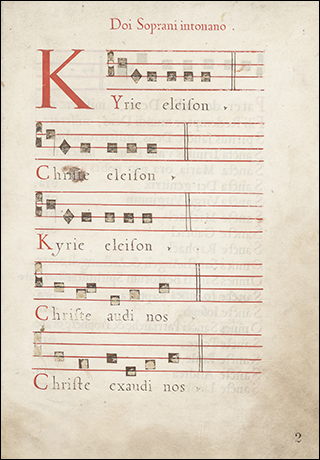 Doi Soprani intonano .
KYrie eleiſon
Chriſte eleiſon .
Kyrie eleiſon .
Chriſte audi nos
Chriſte exaudi nos .
2